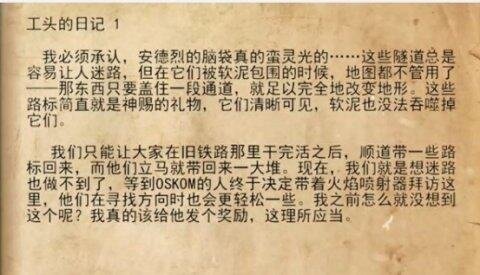 工头的日记 1
我必须承认，安德烈的脑袋真的蛮灵光的……这些隧道总是
容易让人迷路，但在它们被软泥包围的时候，地图都不管用了
——那东西只要盖住一段通道，就足以完全地改变地形。这些
路标简直就是神赐的礼物，它们清晰可见，软泥也没法吞噬掉
它们。
我们只能让大家在旧铁路那里干完活之后，顺道带一些路
标回来，而他们立马就带回来一大堆。现在，我们就是想迷路
也做不到了，等到OSKOM的人终于决定带着火焰喷射器拜访这
里，他们在寻找方向时也会更轻松一些。我之前怎么就没想到
这个呢？我真的该给他发个奖励，这理所应当。